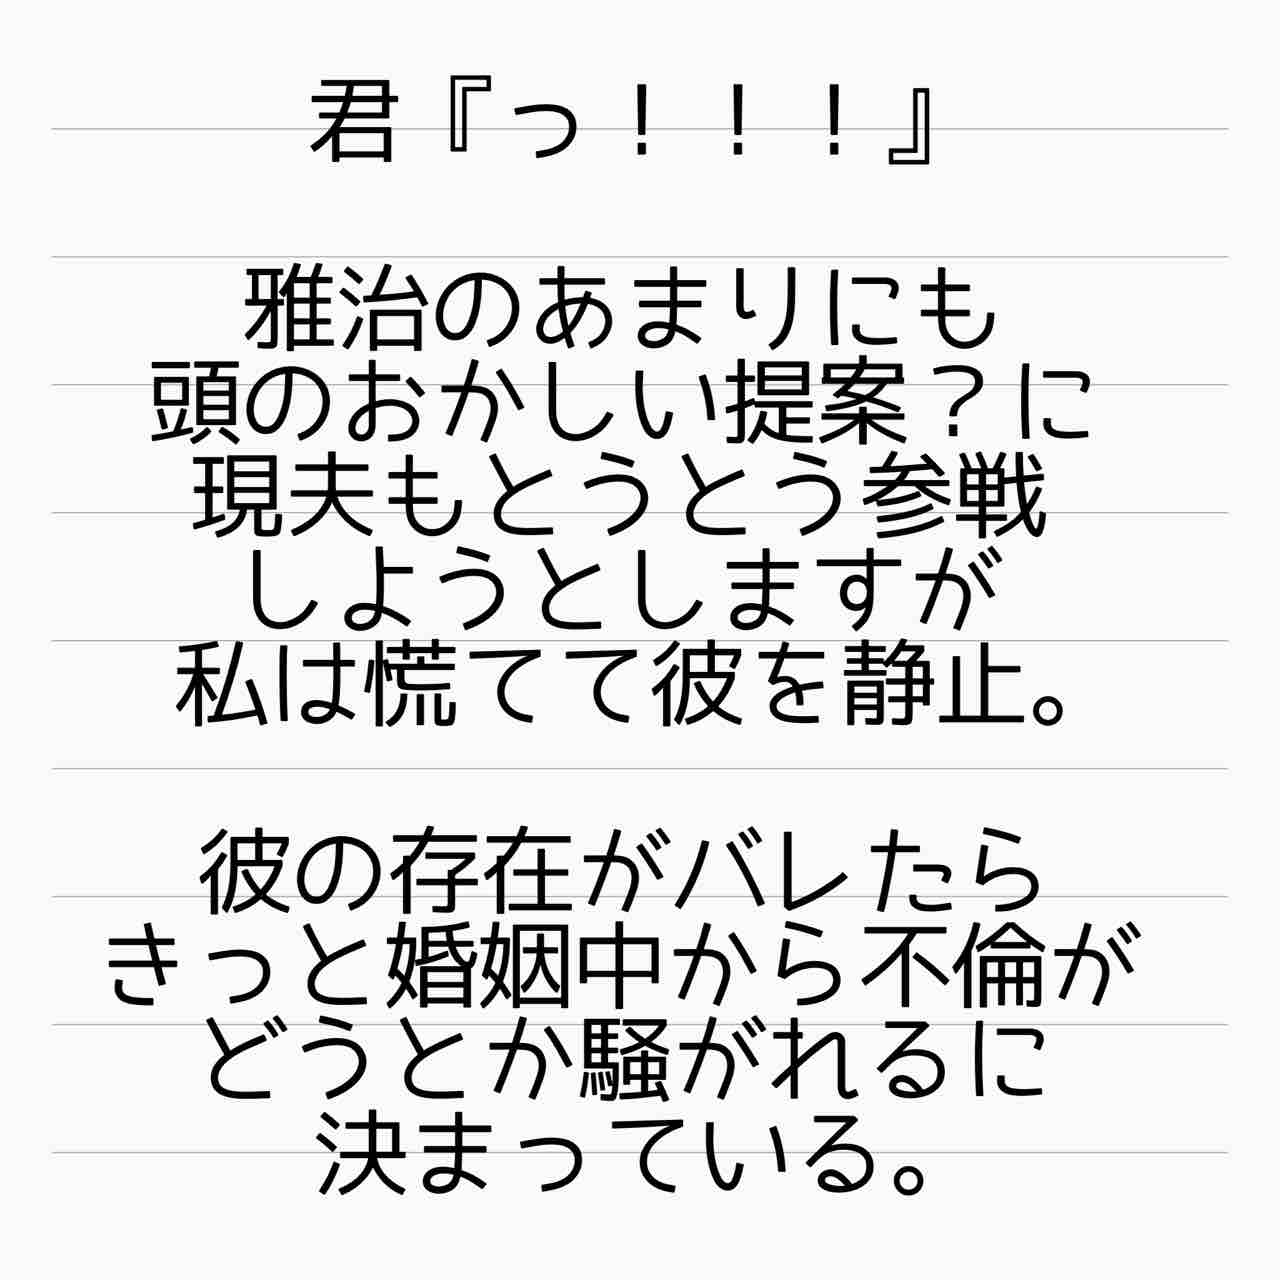 君『っ！！！』
雅治のあまりにも
頭のおかしい提案？に
現夫もとうとう参戦
しようとしますが
私は慌てて彼を静止。
彼の存在がバレたら
きっと婚姻中から不倫が
どうとか騒がれるに
決まっている。